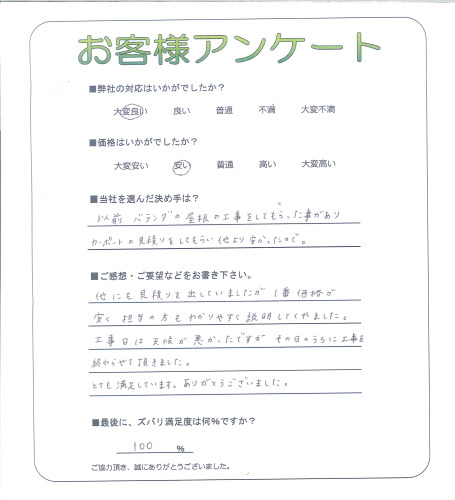 お客様アンケート
■弊社の対応はいかがでしたか?
大変良い 良い 普通 不満 大変不満
■価格はいかがでしたか?
大変安い 安い 普通 高い 大変高い
■当社を選んだ決め手は?
以前 ベランダの屋根の工事をしてもらった事があり
カーポートの見積りをしてもらい他より安かったので。
■ご感想・ご要望などをお書き下さい。
他にも見積りを出していましたが 1番価格が
安く 担当の方もわかりやすく説明してくれました。
工事日は天候が悪かったですが その日のうちに工事を
終わらせて頂きました。
とても満足しています。ありがとうございました。
■最後に、ズバリ満足度は何%ですか?
100 %
ご協力頂き、誠にありがとうございました。